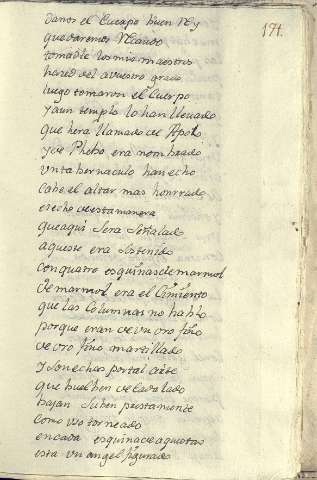 171.
danos el Cuerpo buen Rey
quedaremos
tomadle los mis maestros
hazed del a vuestro grado
luego tomaron el Cuerpo
y a un templo lo han lleuado
que hera llamado de Apolo
y de Phebo era nombrado
vn tabernaculo han echo
Cabe el altar mas honrrado
echo de esta manera
que aqui sera señalado
aqueste era sostenido
con quatro esquinas de marmol
de marmol era el Cimiento
que las Columnas no hablo
porque eran de vn oro fino
de oro fino martillado
y son echas por tal arte
que buelben de cada lado
bajan suben prestamente
como vso torneado
en cada esquina de aquestas
esta vn angel figurado